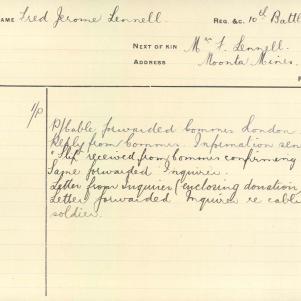 NAME Fred Jerome Lennell. REG. &C. 10th Battl
NEXT OF KIN Mrs F. Lennell.
ADDRESS Moonta Mines.
P/Cable forwarded Commrs London
Reply from Commrs. Information sen
"Slip" received from Commrs confirming
Same forwarded Inquirer.
Letter from Inquirer (enclosing donation
Letter forwarded Inquirer re cabl
soldier.